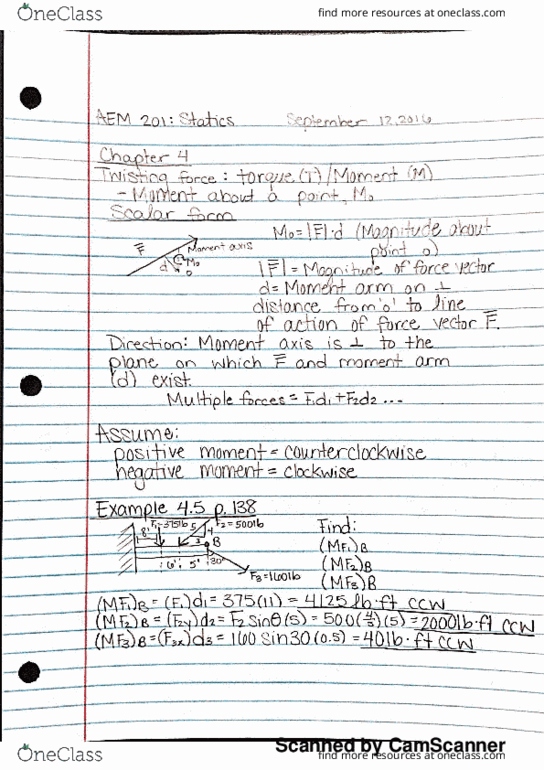 OneClass
find more resources at oneclass.com
AEM 201: Statics September 12, 2016
Chapter 4
Twisting force: torque (T) / Moment (M)
- Moment about a point, Mo
Scalar form
Mo=|F|·d (Magnitude about point o)
F Moment axis
d Mo
o
|F| = Magnitude of force vector
d= Moment arm on ⊥
distance from 'o' to line
of action of force vector F.
Direction: Moment axis is ⊥ to the
plane on which F and moment arm
(d) exist
Multiple forces = F1d1 + F2d2 ...
Assume:
positive moment = counterclockwise
negative moment = clockwise
Example 4.5 p. 138
8' F1=375lb 5 4 F2=500lb
3 B
6' 5' 30°
F3=160lb
Find:
(MF1)B
(MF2)B
(MF3)B
(MF1)B = (F1)d1 = 375(11) = 4125 lb·ft CCW
(MF2)B = (F2y)d2 = F2 sinθ(5) = 500(4/5)(5) = 2000lb·ft CCW
(MF3)B = (F3x)d3 = 160 sin30(0.5) = 40lb·ft CCW
Scanned by CamScanner
OneClass
find more resources at oneclass.com